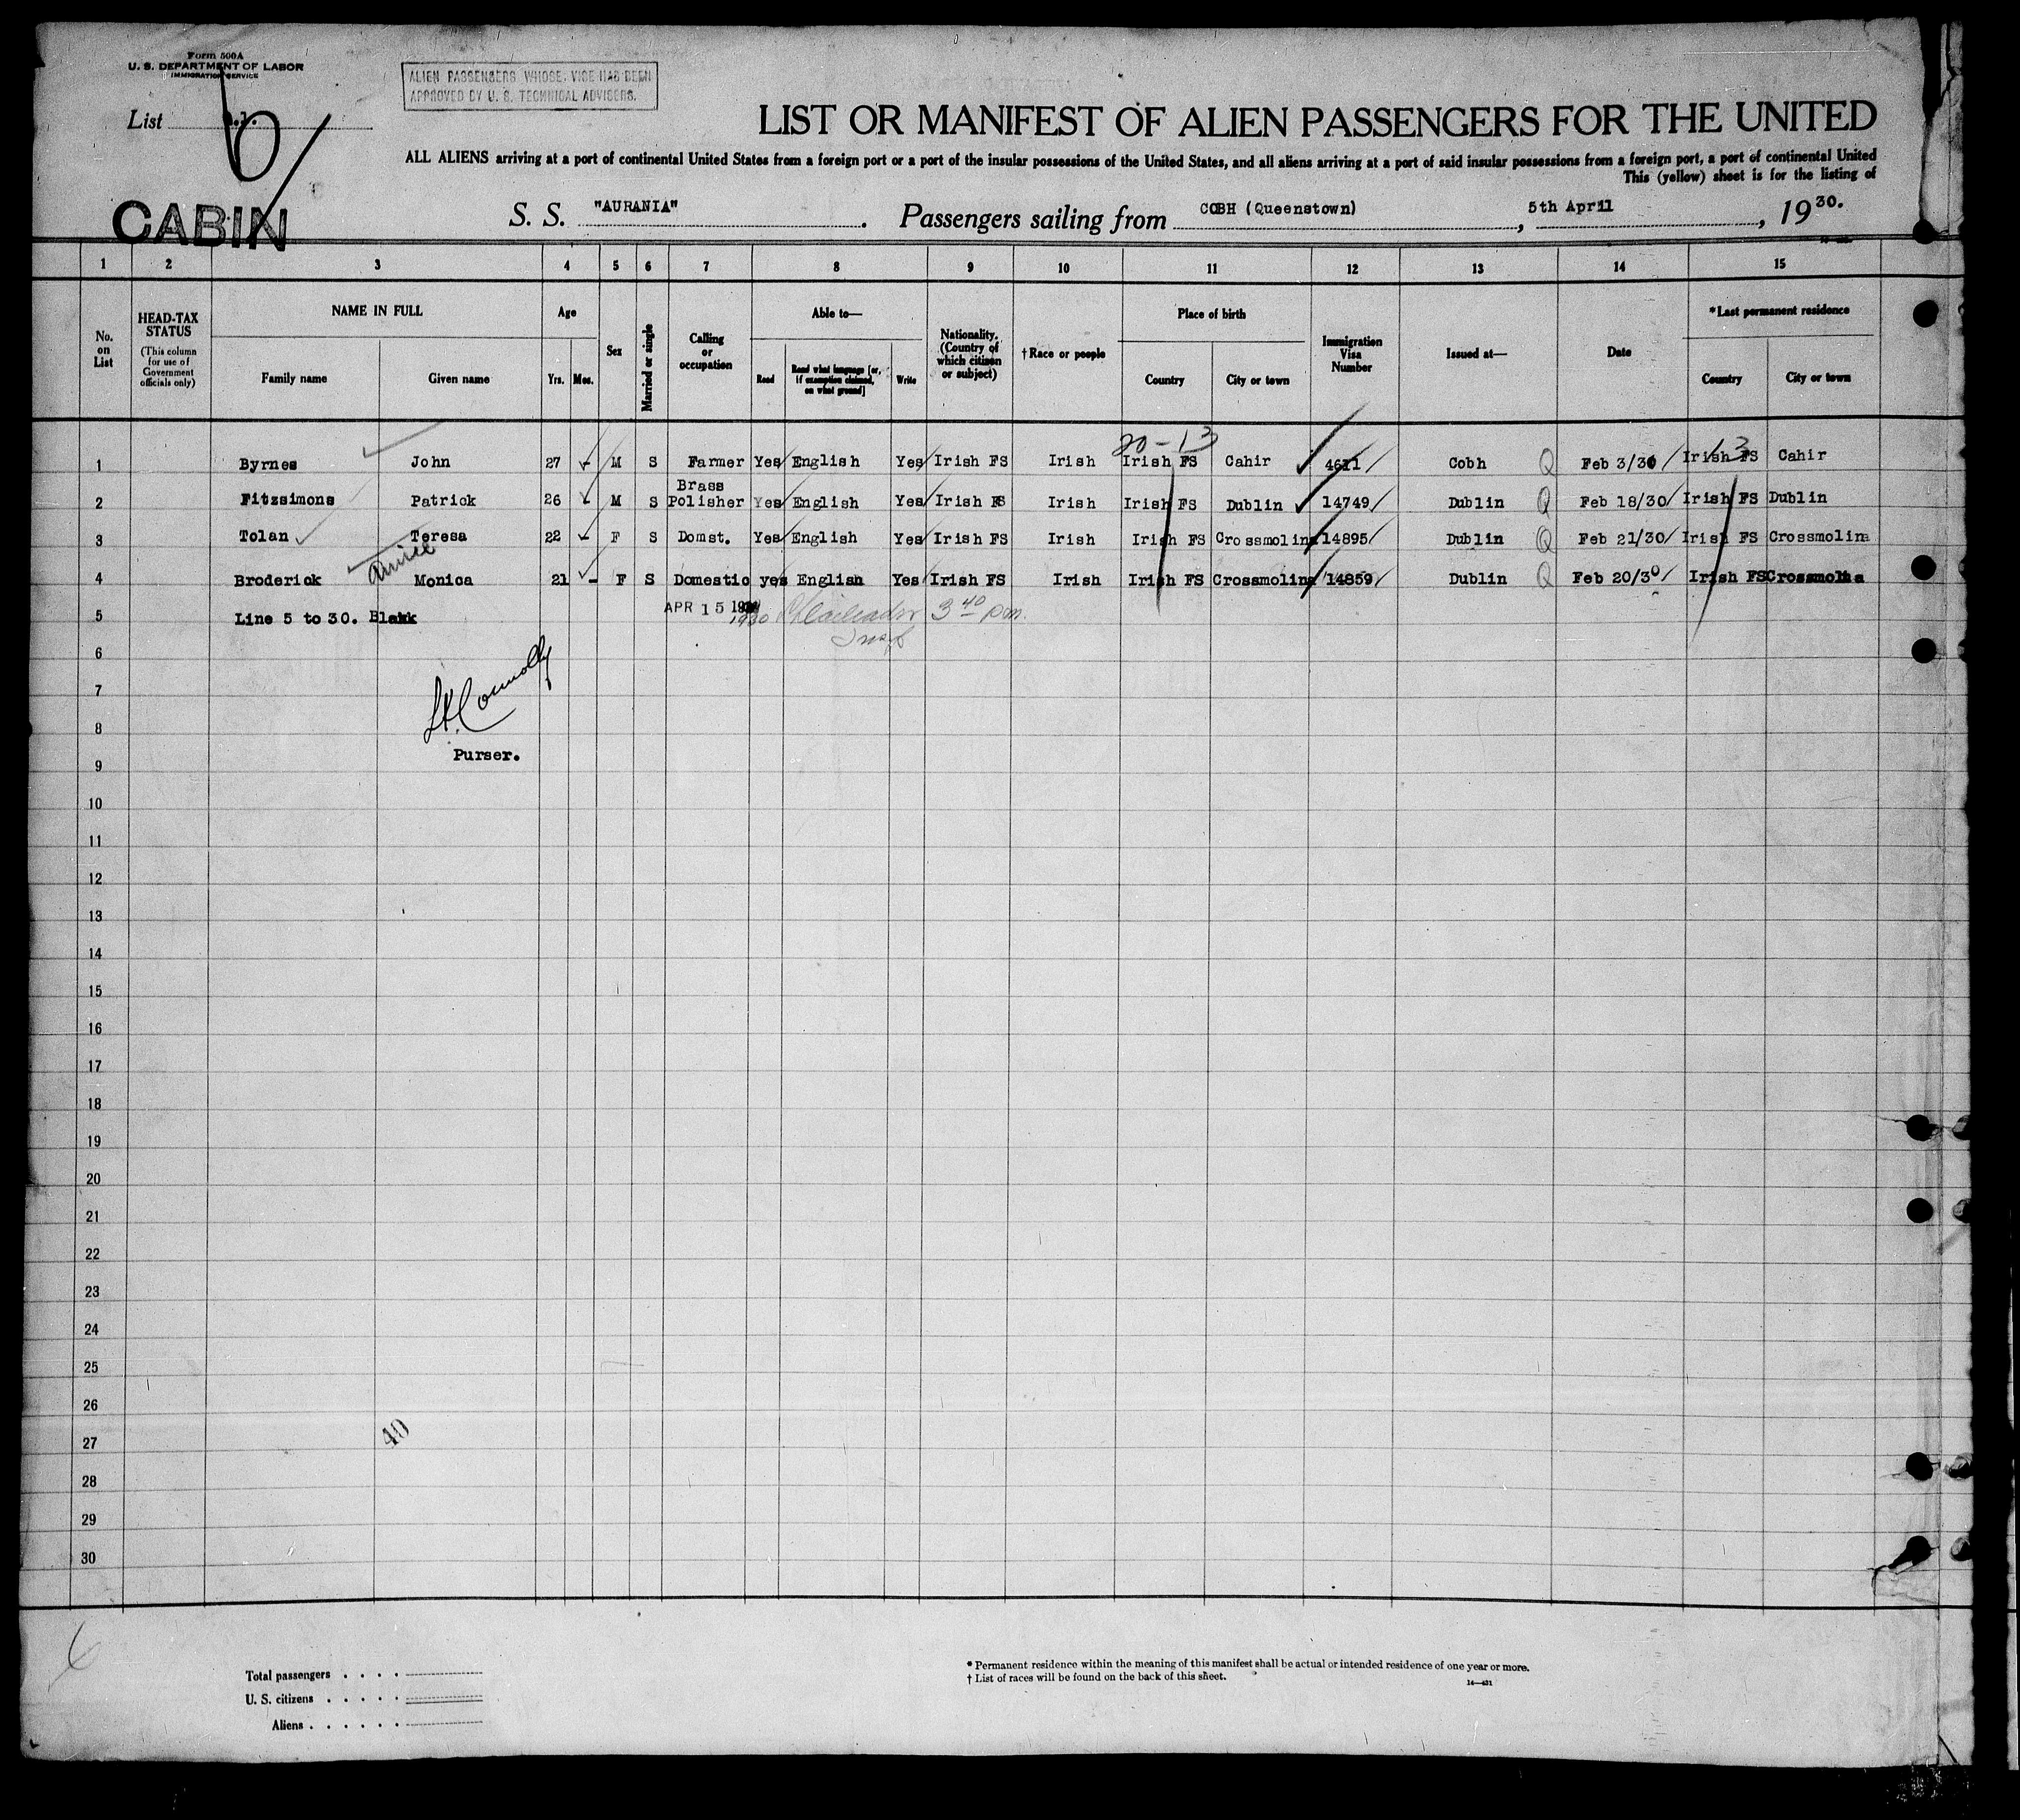 Form 500A
U. S. DEPARTMENT OF LABOR
IMMIGRATION SERVICE
ALIEN PASSENGERS WHOSE VISE HAS BEEN
APPROVED BY U. S. TECHNICAL ADVISERS.
List
6
CABIN
LIST OR MANIFEST OF ALIEN PASSENGERS FOR THE UNITED
ALL ALIENS arriving at a port of continental United States from a foreign port or a port of the insular possessions of the United States, and all aliens arriving at a port of said insular possessions from a foreign port, a port of continental United
This (yellow) sheet is for the listing of
S. S. "AURANIA". Passengers sailing from COBH (Queenstown), 5th April, 1930.
1 2 3 4 5 6 7 8 9 10 11 12 13 14 15
No. on List
HEAD-TAX STATUS
(This column for use of Government officials only)
NAME IN FULL
Family name Given name
Age
Yrs. Mos.
Sex
Married or single
Calling or occupation
Able to—
Read Read what language [or, if exemption claimed, on what ground] Write
Nationality. (Country of which citizen or subject)
†Race or people
Place of birth
Country City or town
Immigration Visa Number
Issued at—
Date
*Last permanent residence
Country City or town
20-13 13
1 Byrnes John 27 - M S Farmer Yes English Yes Irish FS Irish Irish FS Cahir 4611 Cobh Q Feb 3/30 Irish FS Cahir
2 Fitzsimons Patrick 26 - M S Brass Polisher Yes English Yes Irish FS Irish Irish FS Dublin 14749 Dublin Q Feb 18/30 Irish FS Dublin
3 Tolan Teresa 22 - F S Domst. Yes English Yes Irish FS Irish Irish FS Crossmolina 14895 Dublin Q Feb 21/30 Irish FS Crossmolina
4 Broderick Monica 21 - F S Domestic yes English Yes Irish FS Irish Irish FS Crossmolina 14859 Dublin Q Feb 20/30 Irish FS Crossmolina
5 Line 5 to 30. Blank APR 15 1930 3 40 pm.
Insp
6
7
L.H. Connolly
8
Purser.
9
10
11
12
13
14
15
16
17
18
19
20
21
22
23
24
25
26
27
40
28
29
30
Total passengers . . . .
U. S. citizens . . . . .
Aliens . . . . . .
* Permanent residence within the meaning of this manifest shall be actual or intended residence of one year or more.
† List of races will be found on the back of this sheet.
14—431